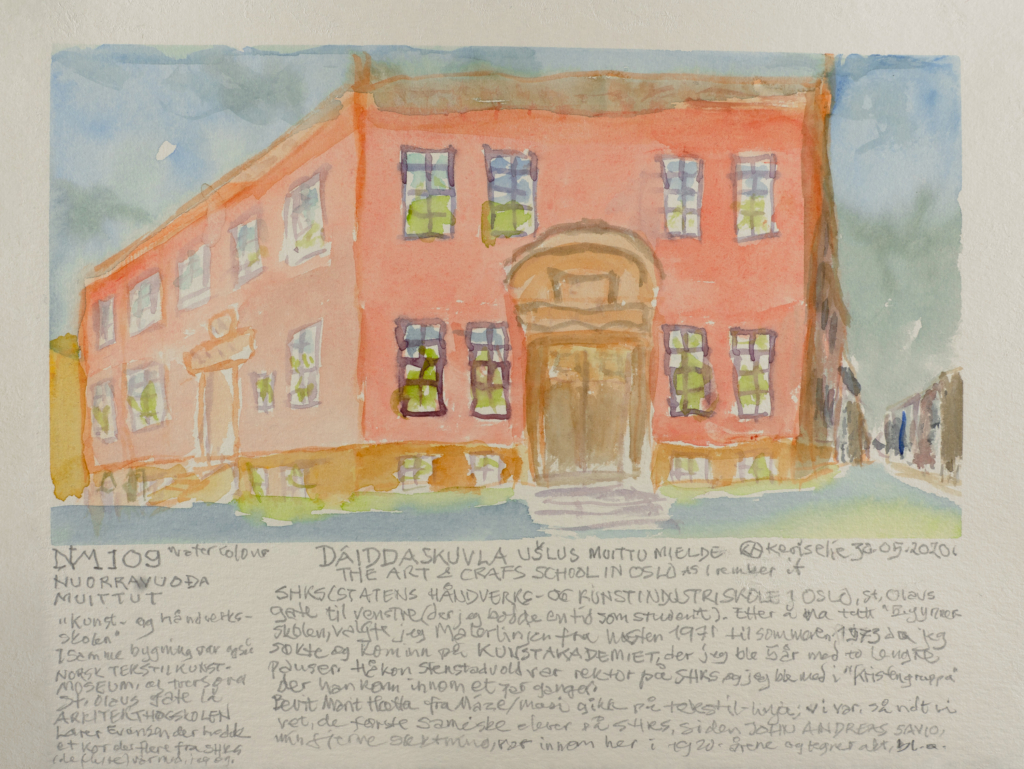 NM109 watercolour
NUORRAVUOĐA
MUITTUT
"Kunst- og håndverks-
skolen"
I samme bygning var også
NORSK TEKSTIL KUNST-
MUSEUM, og tversover
St. Olavs gate lå
ARKITEKTHØGSKOLEN
et kor der flere fra SHKS
DÁIDDASKUVLA UŠLUS MUITTU MIELDE keviselie 30.05.2020.
THE ART & CRAFTS SCHOOL IN OSLO as I remember it
SHKS (STATENS HÅNDVERKS- OG KUNSTINDUSTRISKOLE I OSLO, St. Olavs
gate til venstre (der jeg bodde en tid som student). Etter å ha tatt "Begynner-
skolen, valgte jeg Malerlinjen fra høsten 1971 til sommeren 1973 da jeg
søkte og kom inn på KUNSTAKADEMIET, der jeg ble 5 år med to lengre
pauser. Håkon Stenstadvold var rektor på SHKS og jeg ble med i "Kristengruppa"
der han kom innom et par ganger.
Berit Marit Hætta fra Maze/Masi gikk på tekstil-linja; vi var, så vidt vi
vet, de første samiske elever på SHKS, siden JOHN ANDREAS SAVIO,
min fjerne slektning, var innom her i 1920-årene og tegnet akt, bl.a.